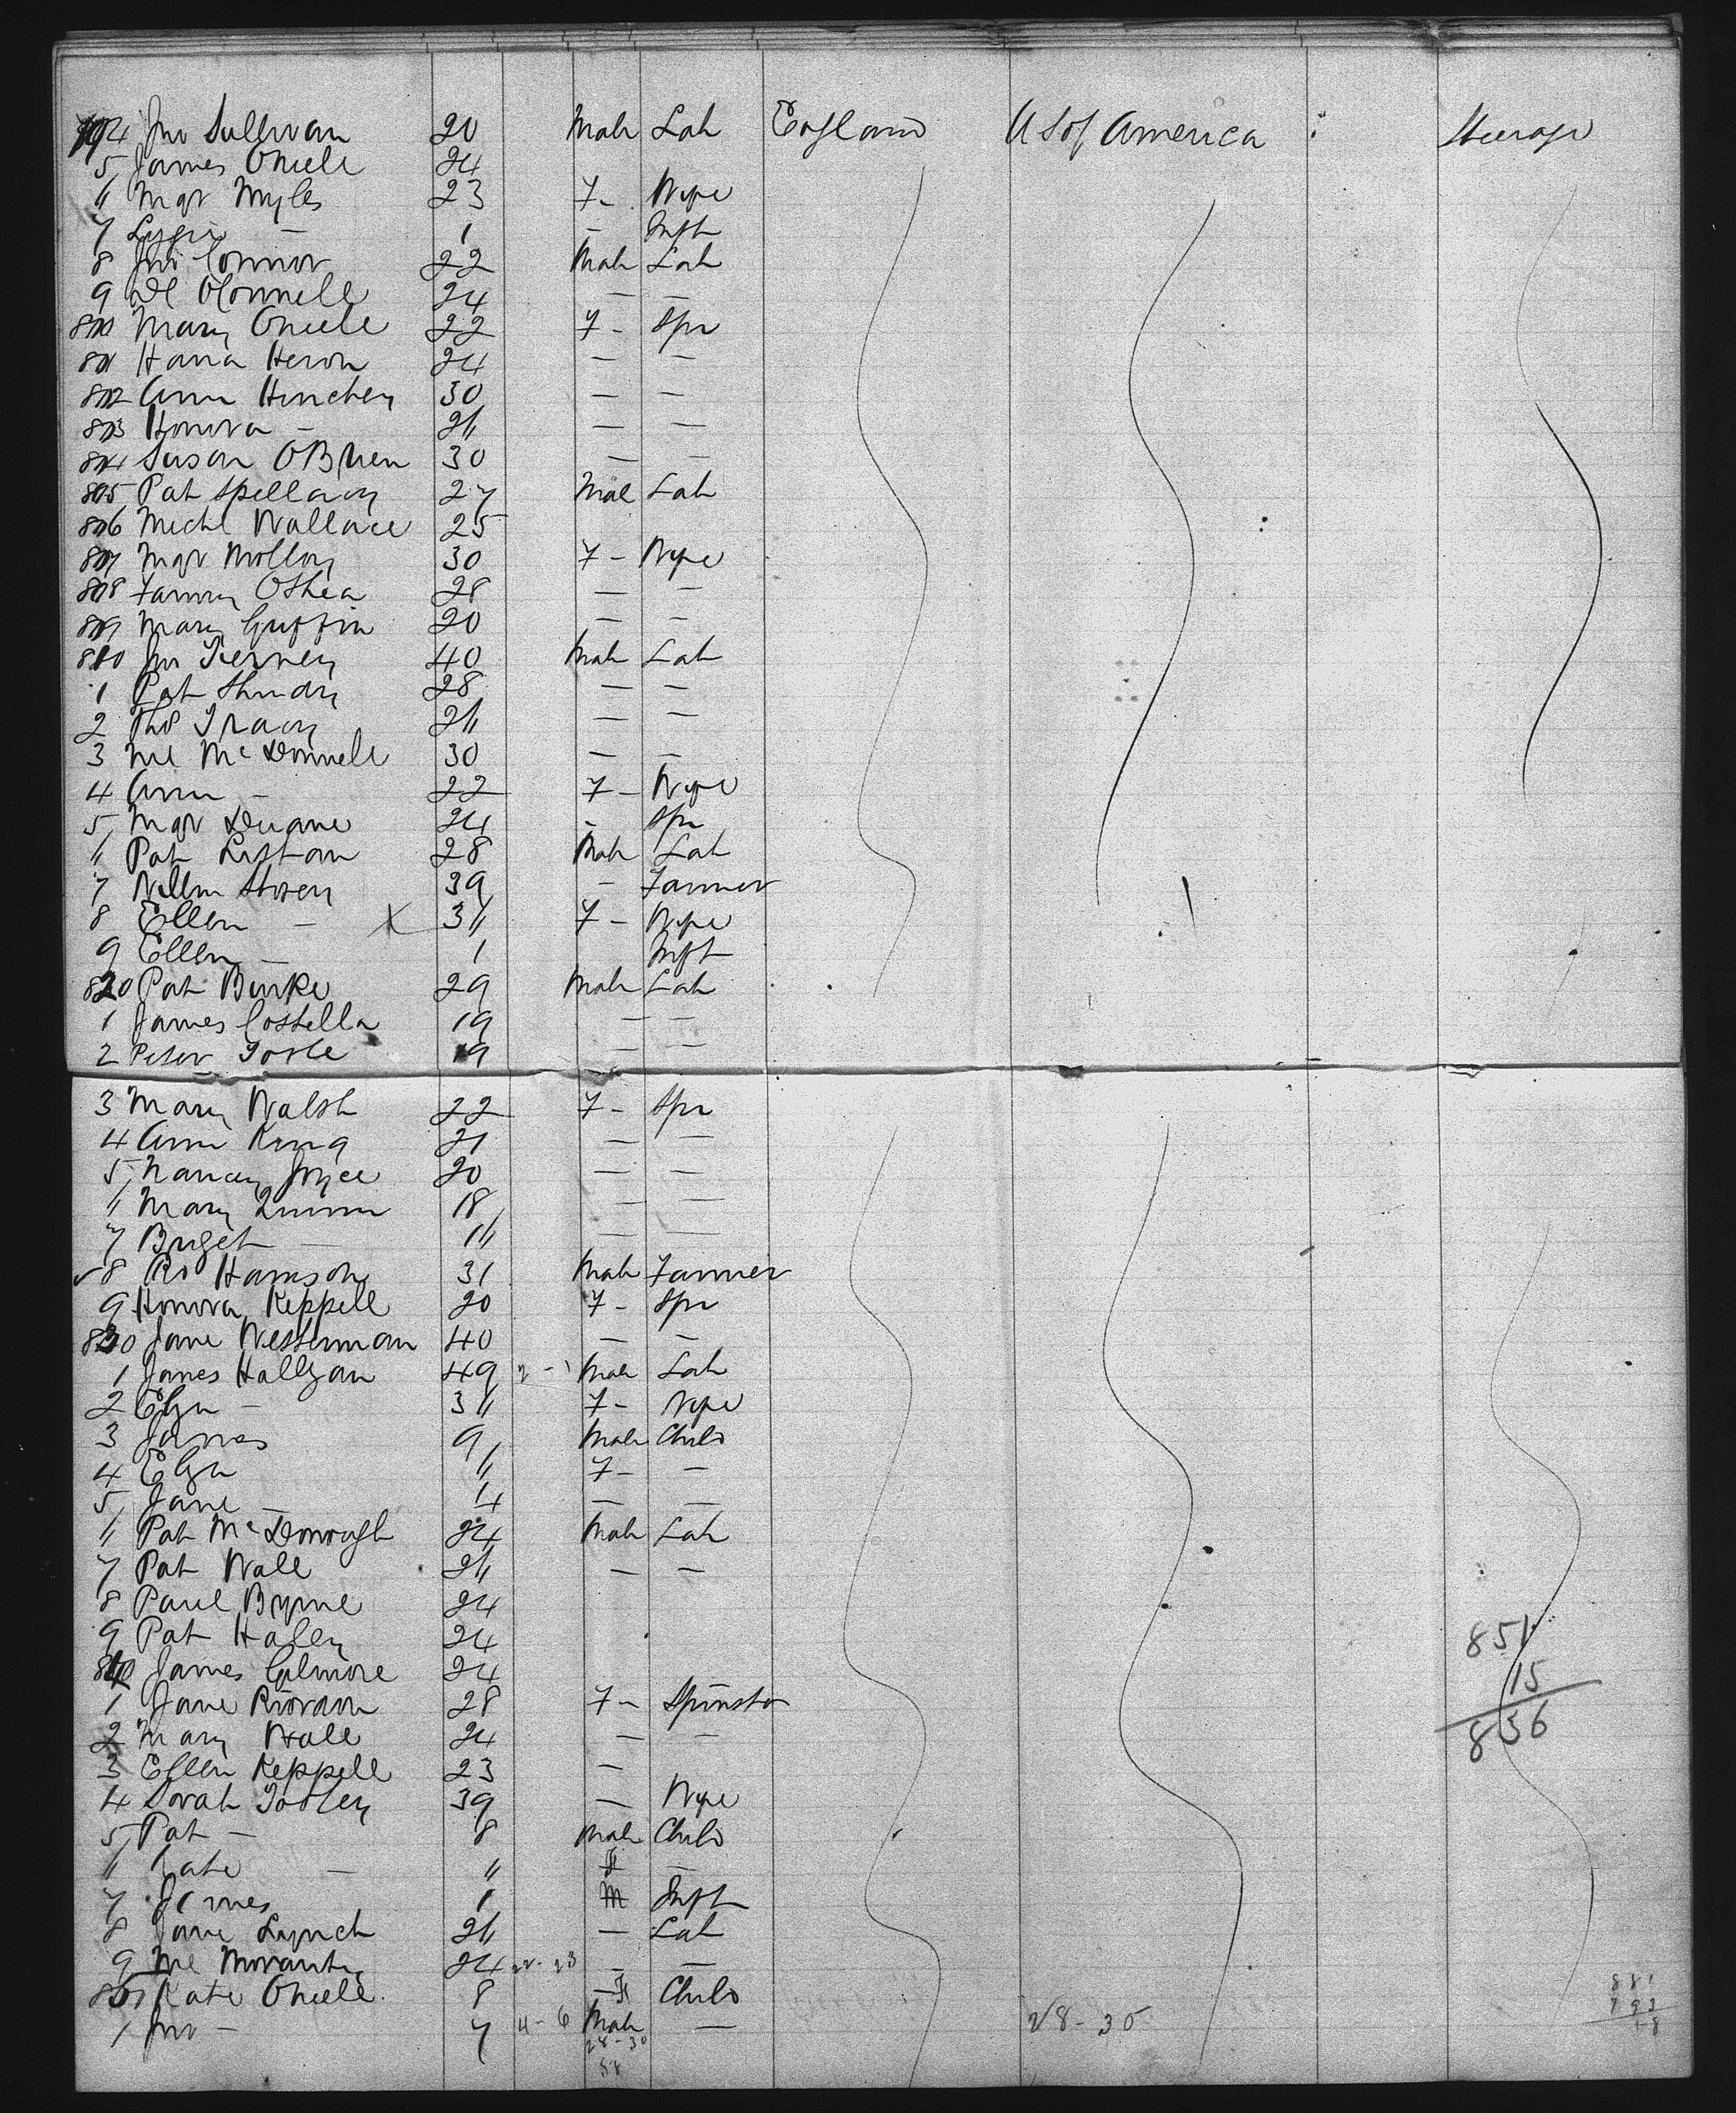 794 Jno Sullivan 20 Male Lab England US of America Steerage
5 James Oneile 24
6 Mgr Myles 23 F - Wife
7 Lizzie — 1 - Inft
8 Jno Connor 22 Male Lab
9 Ml OConnell 24 — —
800 Mary Oneile 22 F - Spr
801 Hana Heron 24 — —
802 Ann Hinchey 30 — —
803 Honora - 26 — —
804 Susan OBrien 30 — —
805 Pat Spellacy 27 Male Lab
806 Michl Wallace 25
807 Mgr Molloy 30 F - Wife
808 Fanny OShea 28 — —
809 Mary Griffin 20 — —
810 Jno Tierney 40 Male Lab
1 Pat 28 — —
2 Tho Tracy 26 — —
3 Ml McDonnell 30 — —
4 Ann - 22 F - Wife
5 Mgr Duane 24 - Spr
6 Pat Liston 28 Male Lab
7 Willm 39 - Farmer
8 Ellen - X 36 F - Wife
9 Ellen - 1 Inft
820 Pat Burke 29 Male Lab
1 James Costella 19 — —
2 Peter Toole 19 — —
3 Mary Walsh 22 F - Spr
4 Ann King 21 — —
5 Nancy Joyce 20 — —
6 Mary Quinn 18 — —
7 Briget — 16 — —
8 Ro Harrison 31 Male Farmer
9 Honora Keppell 20 F - Spr
830 Jane Westerman 40 — —
1 James Halligan 49 Male Lab
2 Eliza - 36 F - Wife
3 James 9 Male Child
4 Eliza 6 F - —
5 Jane - 4 — —
6 Pat McDonough 24 Male Lab
7 Pat Wall 26 — —
8 Paul Byrne 24
9 Pat Haley 24
840 James Gilmore 24
1 Jane Riordan 28 F - Spinster
2 Mary Wall 24 — —
3 Ellen Keppell 23 —
4 Sarah Tooley 39 — Wife
5 Pat - 8 Male Child
6 Kate — 6 F —
7 James 1 M Inft
8 Jane Lynch 26 — Lab
9 Ml Moriarty 24 — —
850 Kate Oneile 8 - F Child
1 Jno - 7 4 - 6 Male —
28 - 30
58
28 - 30
851
15
836